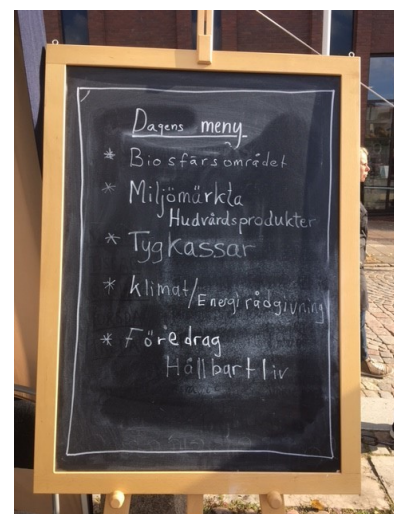 Dagens meny
* Biosfärsområdet
* Miljömärkta
Hudvårdsprodukter
* Tygkassar
* Klimat/Energirådgivning
* Föredrag
Hållbart liv